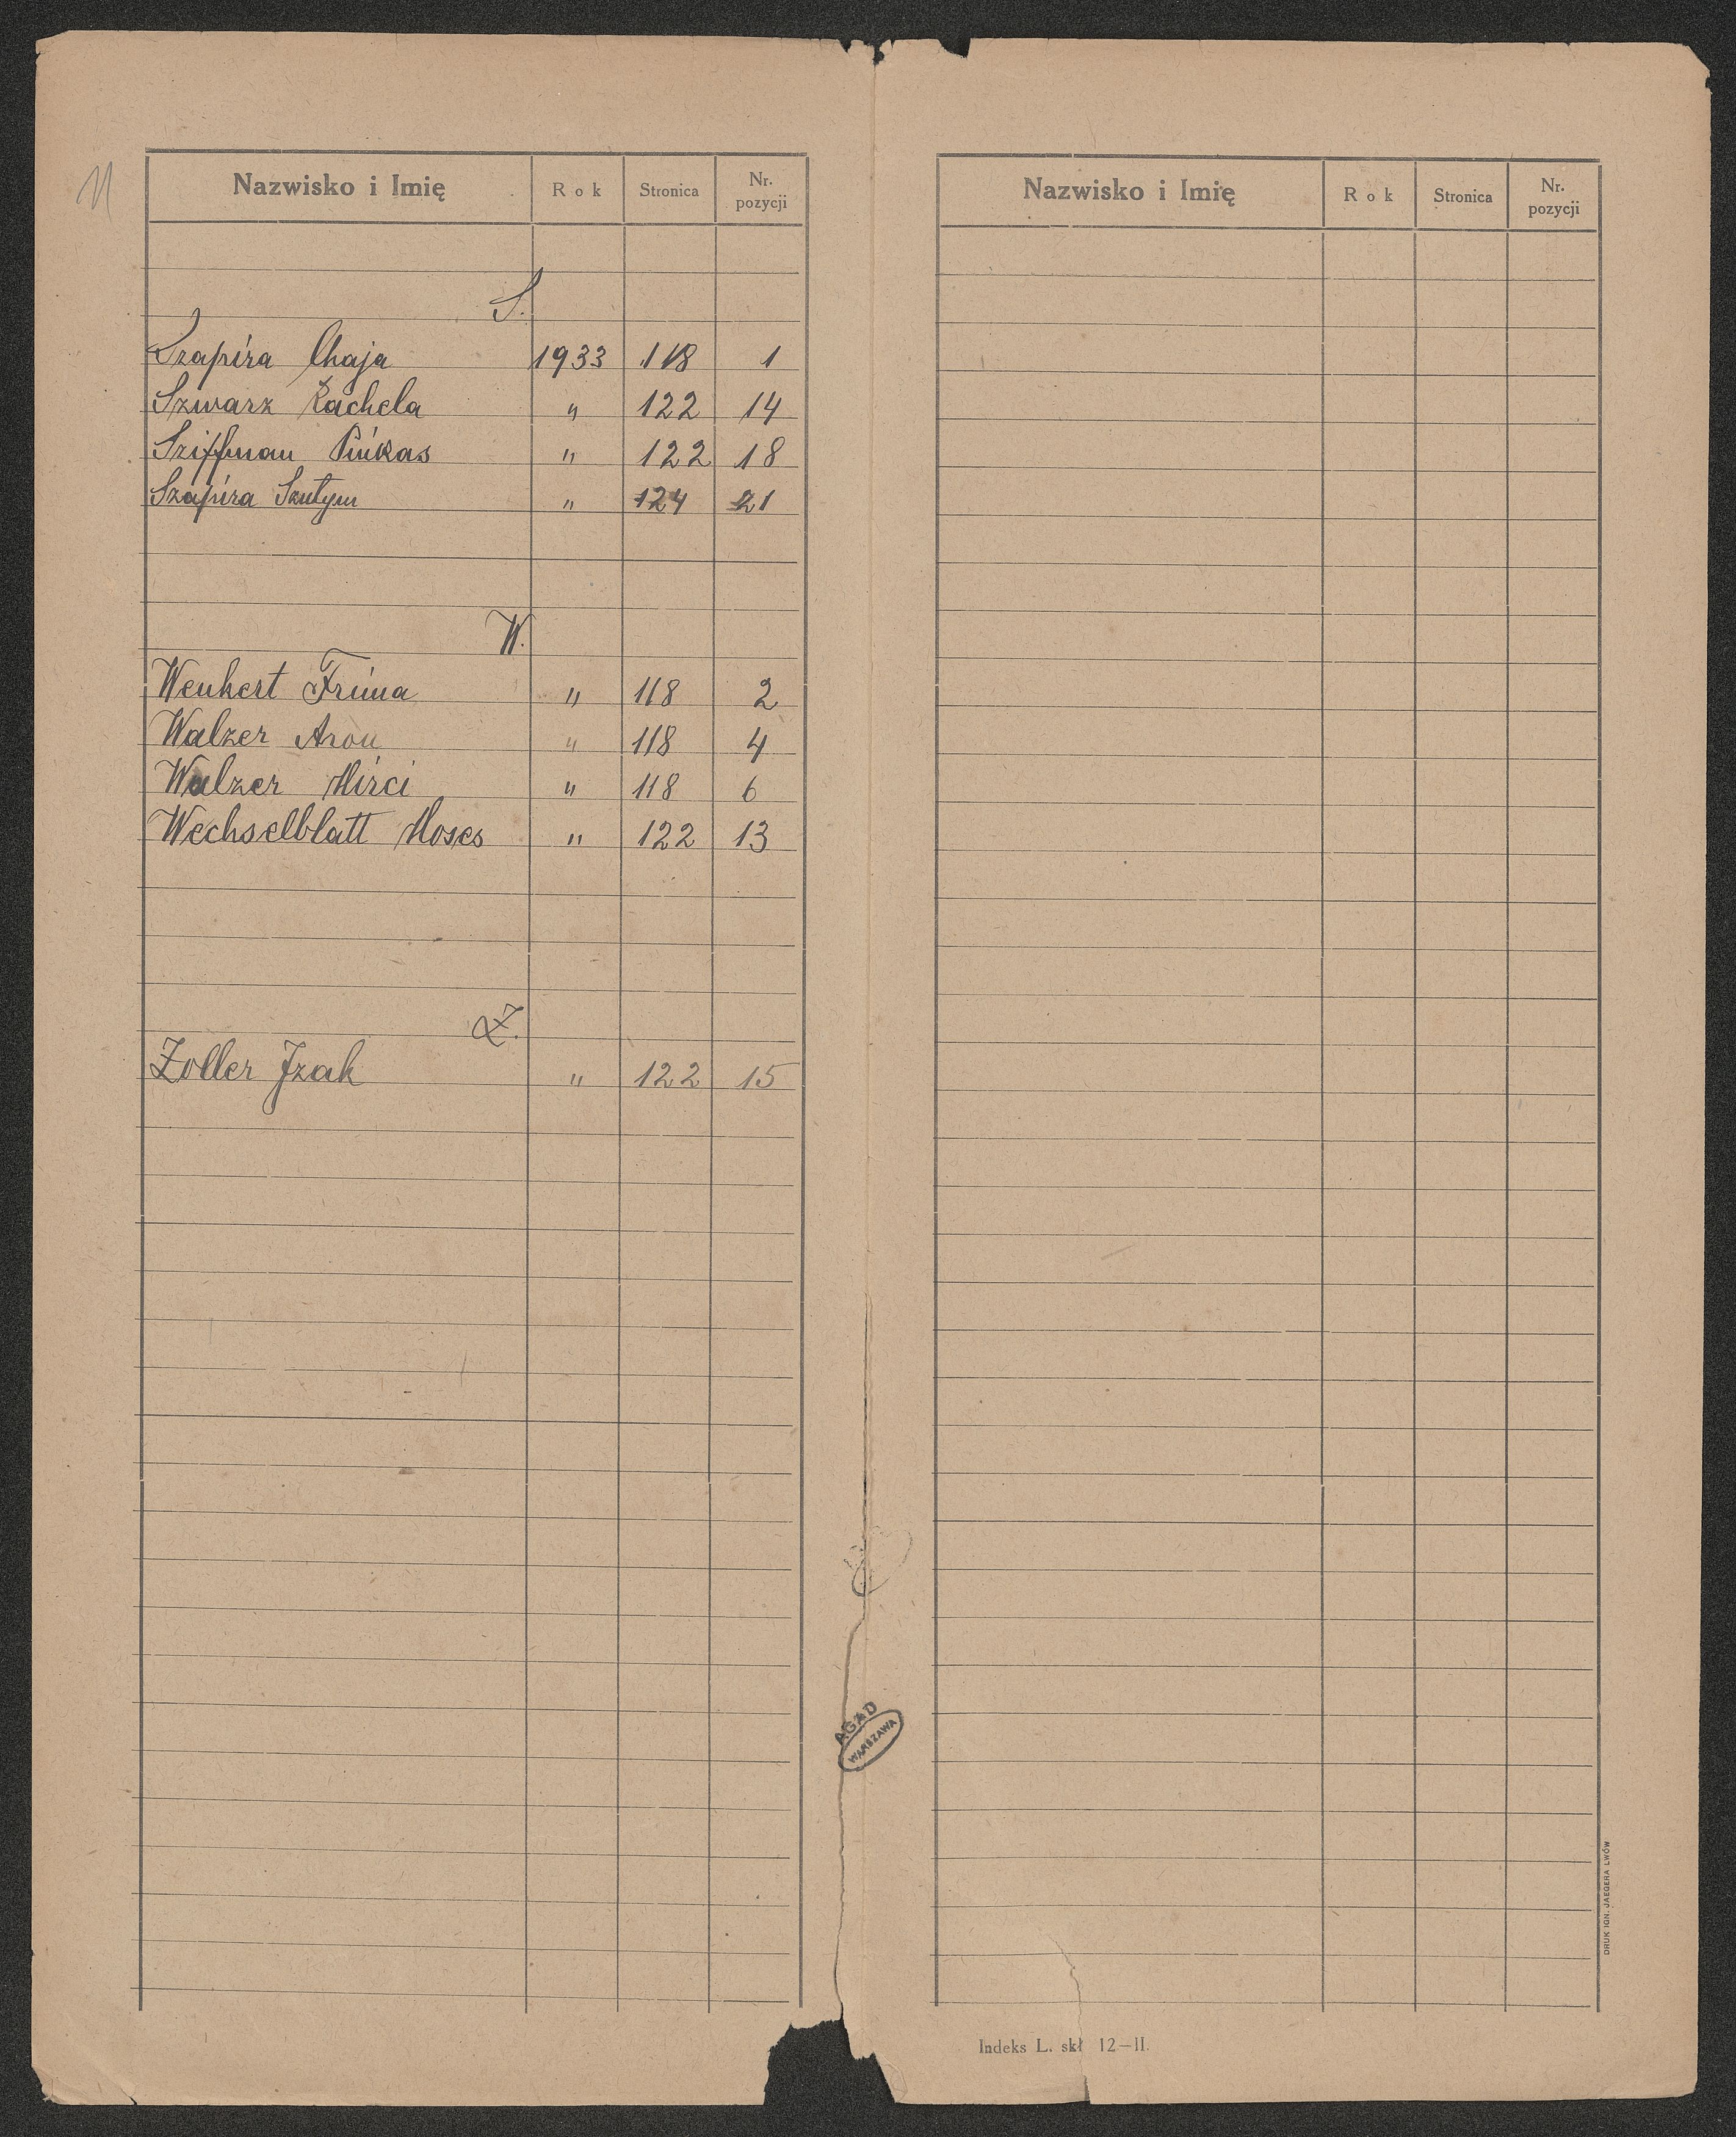 Nazwisko i Imię Rok Stronica Nr. pozycji
S.
Szapira Chaja 1933 118 1
Szwarz Rachela " 122 14
Sziffman Pinkas " 122 18
Szapira " 124 21
W.
Wenkert Frima " 118 2
Walzer Aron " 118 4
Walzer Mirci " 118 6
Wechselblatt Moses " 122 13
Z.
Zoller Izak " 122 15
Nazwisko i Imię Rok Stronica Nr. pozycji
AGAD
WARSZAWA
DRUK IGN. JAEGERA LWÓW
Indeks L. skł 12—II.